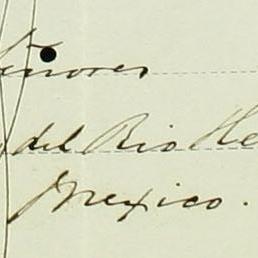 Señores
del Rio He
Mexico.